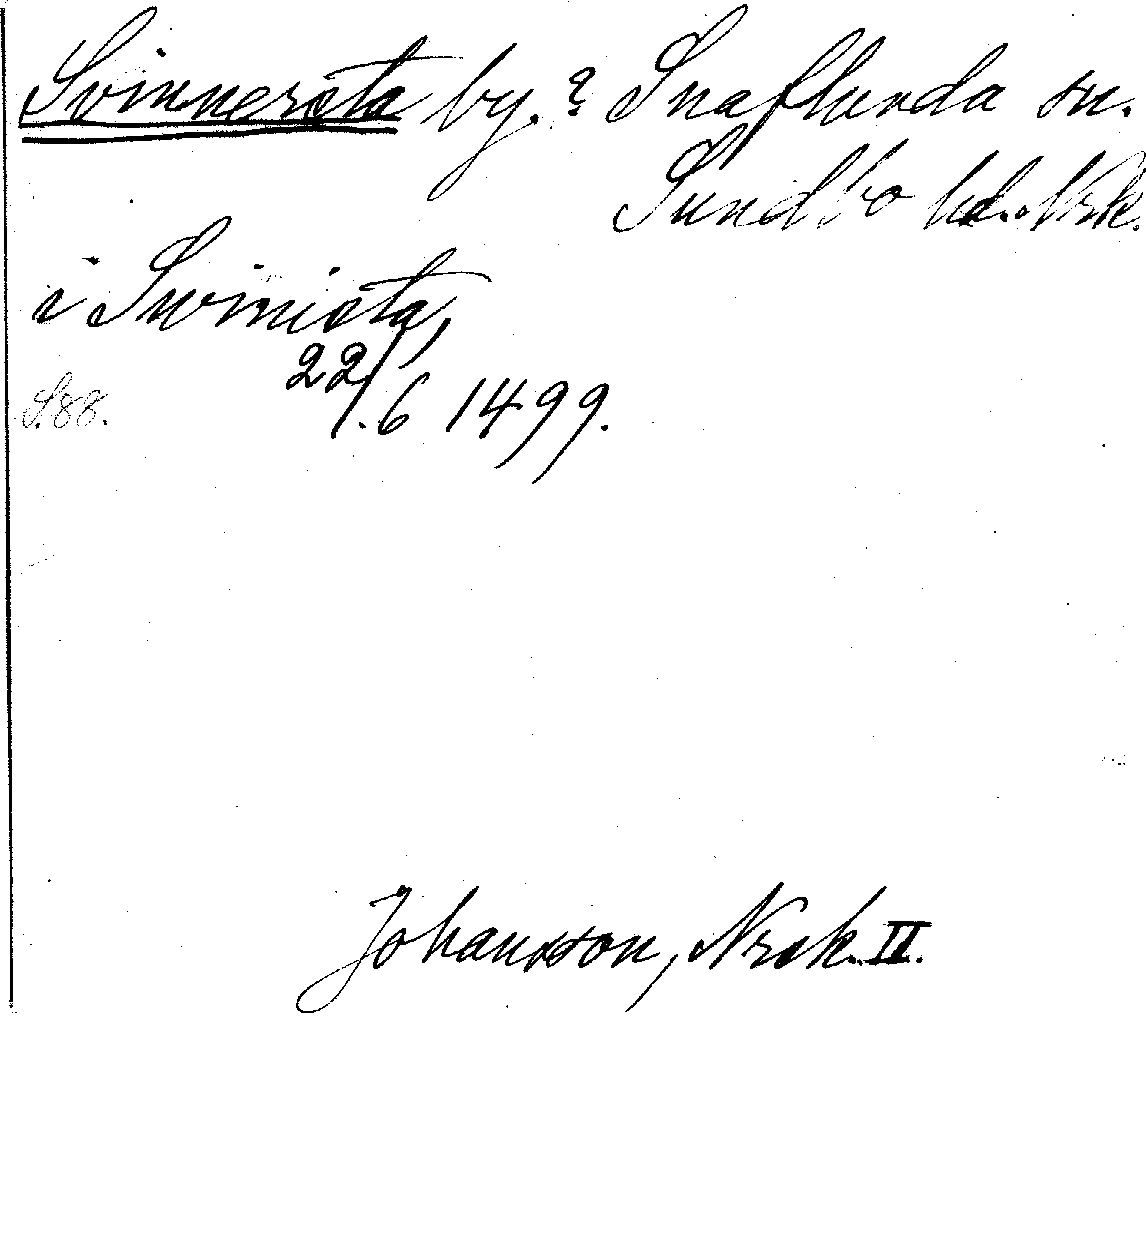 Svinnersta by. ? Snaflunda sn.
Sundbo hd. Nrk.
i Swinista,
22/6 1499.
S. 88.
Johansson, Nrck. II.